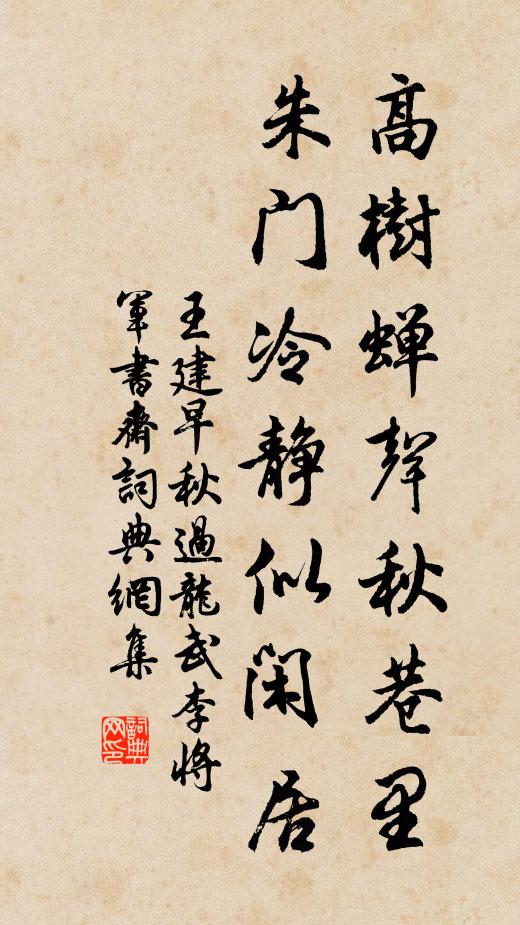 高樹蝉聲秋巷里
朱门冷静似閑居
王建早秋過龍武李将
軍書齋詞典網集
詞典网印